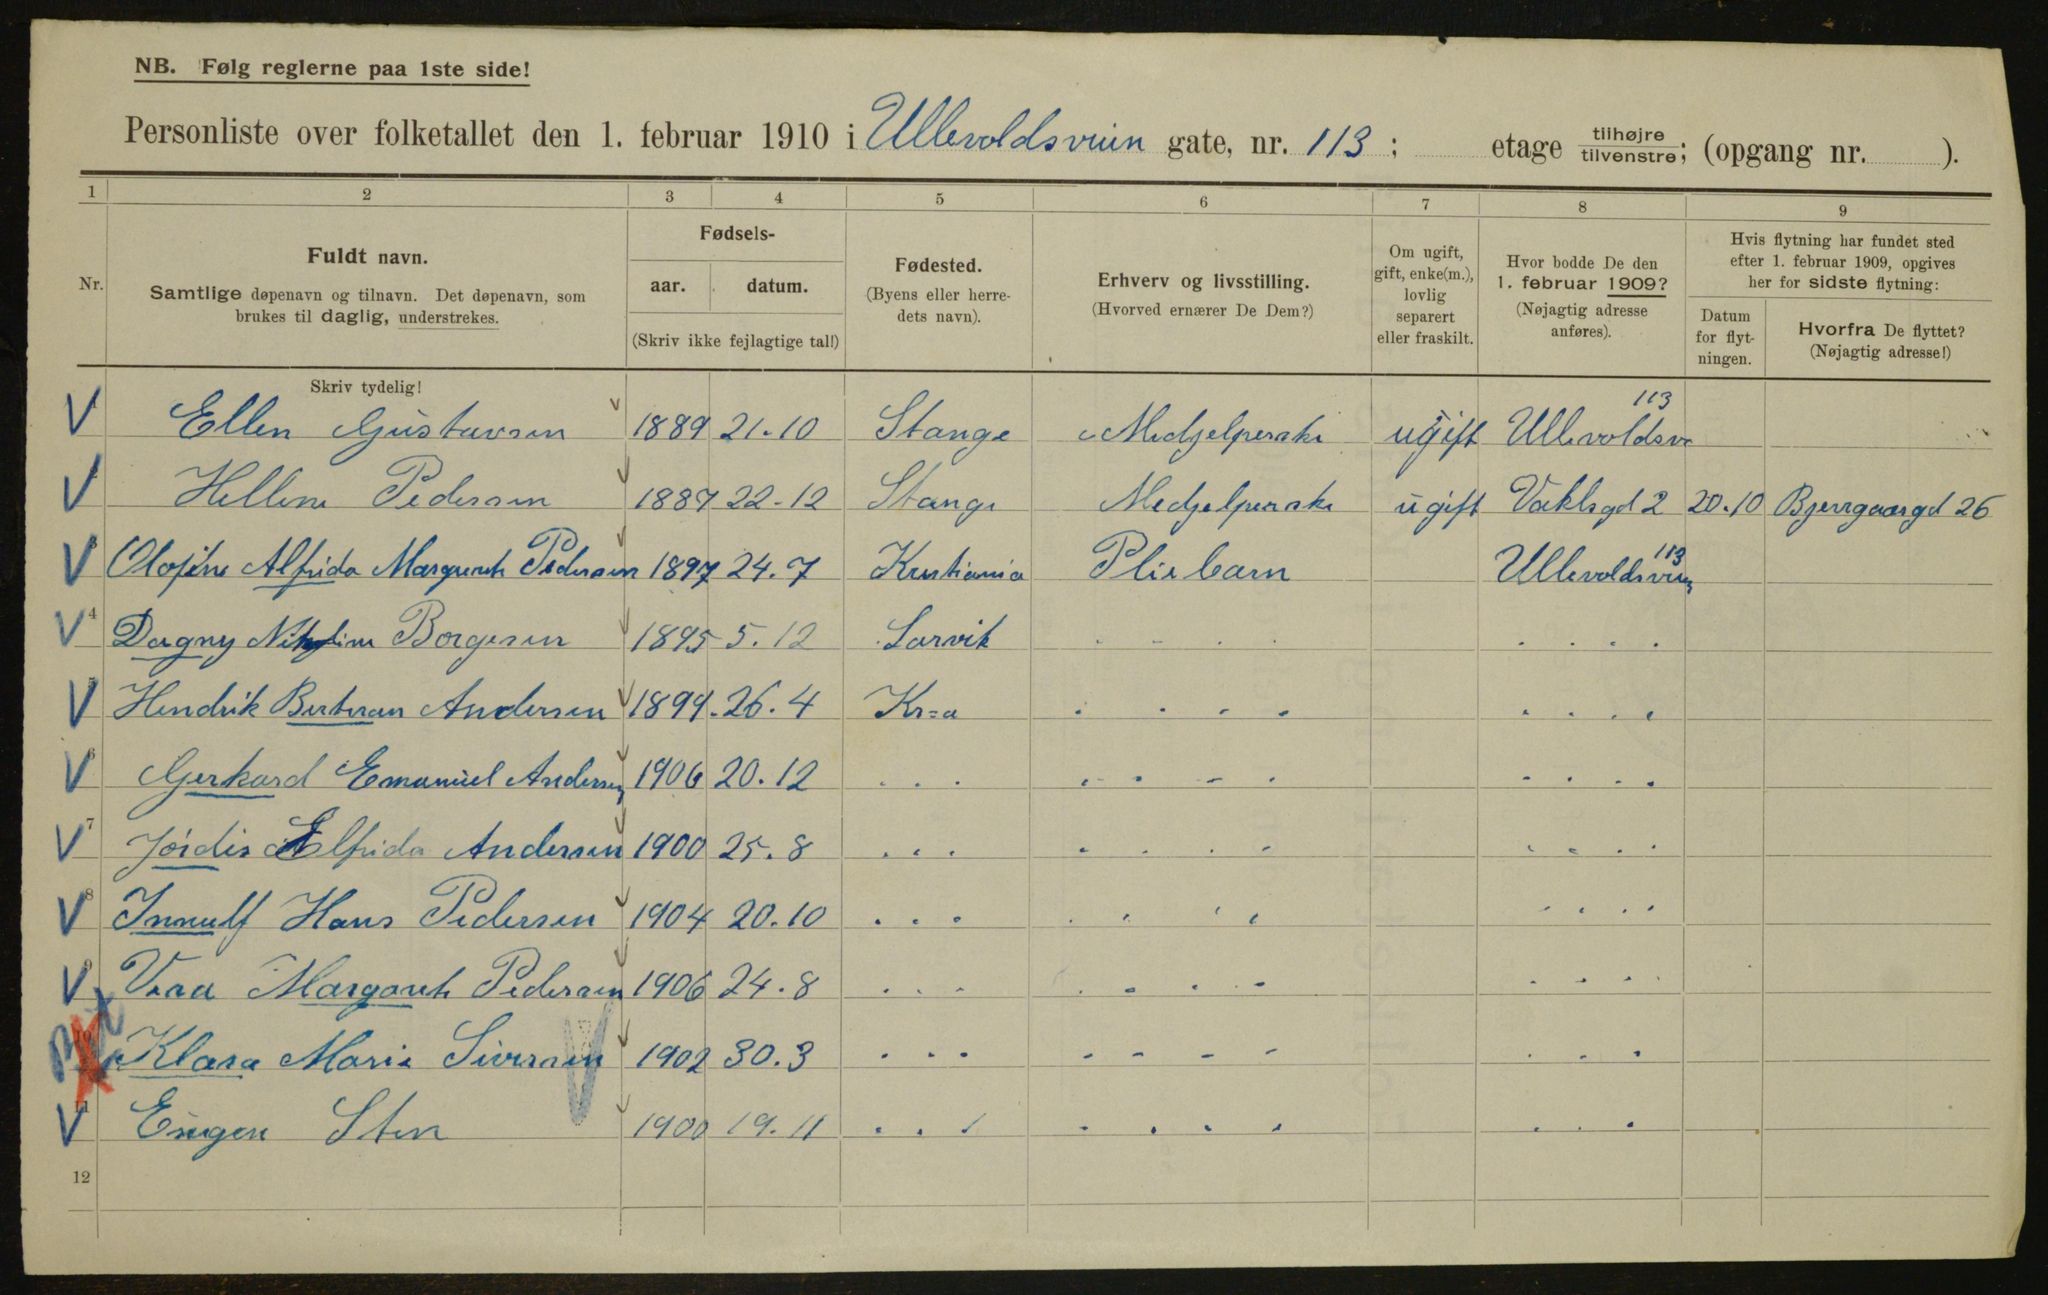 NB. Følg reglerne paa 1ste side!
Personliste over folketallet den 1. februar 1910 i Ullevoldsveien gate, nr. 113 ; etage tilhøjre / tilvenstre; (opgang nr. ).
1 2 3 4 5 6 7 8 9
Nr.
Fuldt navn.
Samtlige døpenavn og tilnavn. Det døpenavn, som
brukes til daglig, understrekes.
Skriv tydelig!
Fødsels-
aar. datum.
(Skriv ikke fejlagtige tal!)
Fødested.
(Byens eller herre-
dets navn).
Erhverv og livsstilling.
(Hvorved ernærer De Dem?)
Om ugift,
gift, enke(m.),
lovlig
separert
eller fraskilt.
Hvor bodde De den
1. februar 1909?
(Nøjagtig adresse
anføres).
Hvis flytning har fundet sted
efter 1. februar 1909, opgives
her for sidste flytning:
Datum
for flyt-
ningen.
Hvorfra De flyttet?
(Nøjagtig adresse!)
V Ellen Gustavsen 1889 21.10 Stange Medjelperske ugift Ullevoldsv 113
V Hellene Pedersen 1887 22-12 Stange Medjelperske ugift Vaklsgd 2 20.10 Bjerrgaargd 26
V Olofine Alfrida Margareth Pedersen 1897 24.7 Kristiania Pleiebarn Ullevoldsveien 113
V 4 Dagny Borgesen 1895 5.12 Larvik . . . . . . . .
V 5 Hendrik Berteran Andersen 1899 26.4 Kr=a . . . . . . . .
V 6 Gerhard Emanuel Andersen 1906 20.12 . . . . . . . . . . .
V 7 Jordis Elfrida Andersen 1900 25.8 . . . . . . . . . . .
V 8 Innulf Hans Pedersen 1904 20.10 . . . . . . . . . . .
V 9 Vera Margareth Pedersen 1906 24.8 . . . . . . . . . . .
10 Klara Marie Siversen V 1902 30.3 . . . . . . . . . .
V 11 Eugen Sten 1900 19.11 . . . . . . . . . .
12